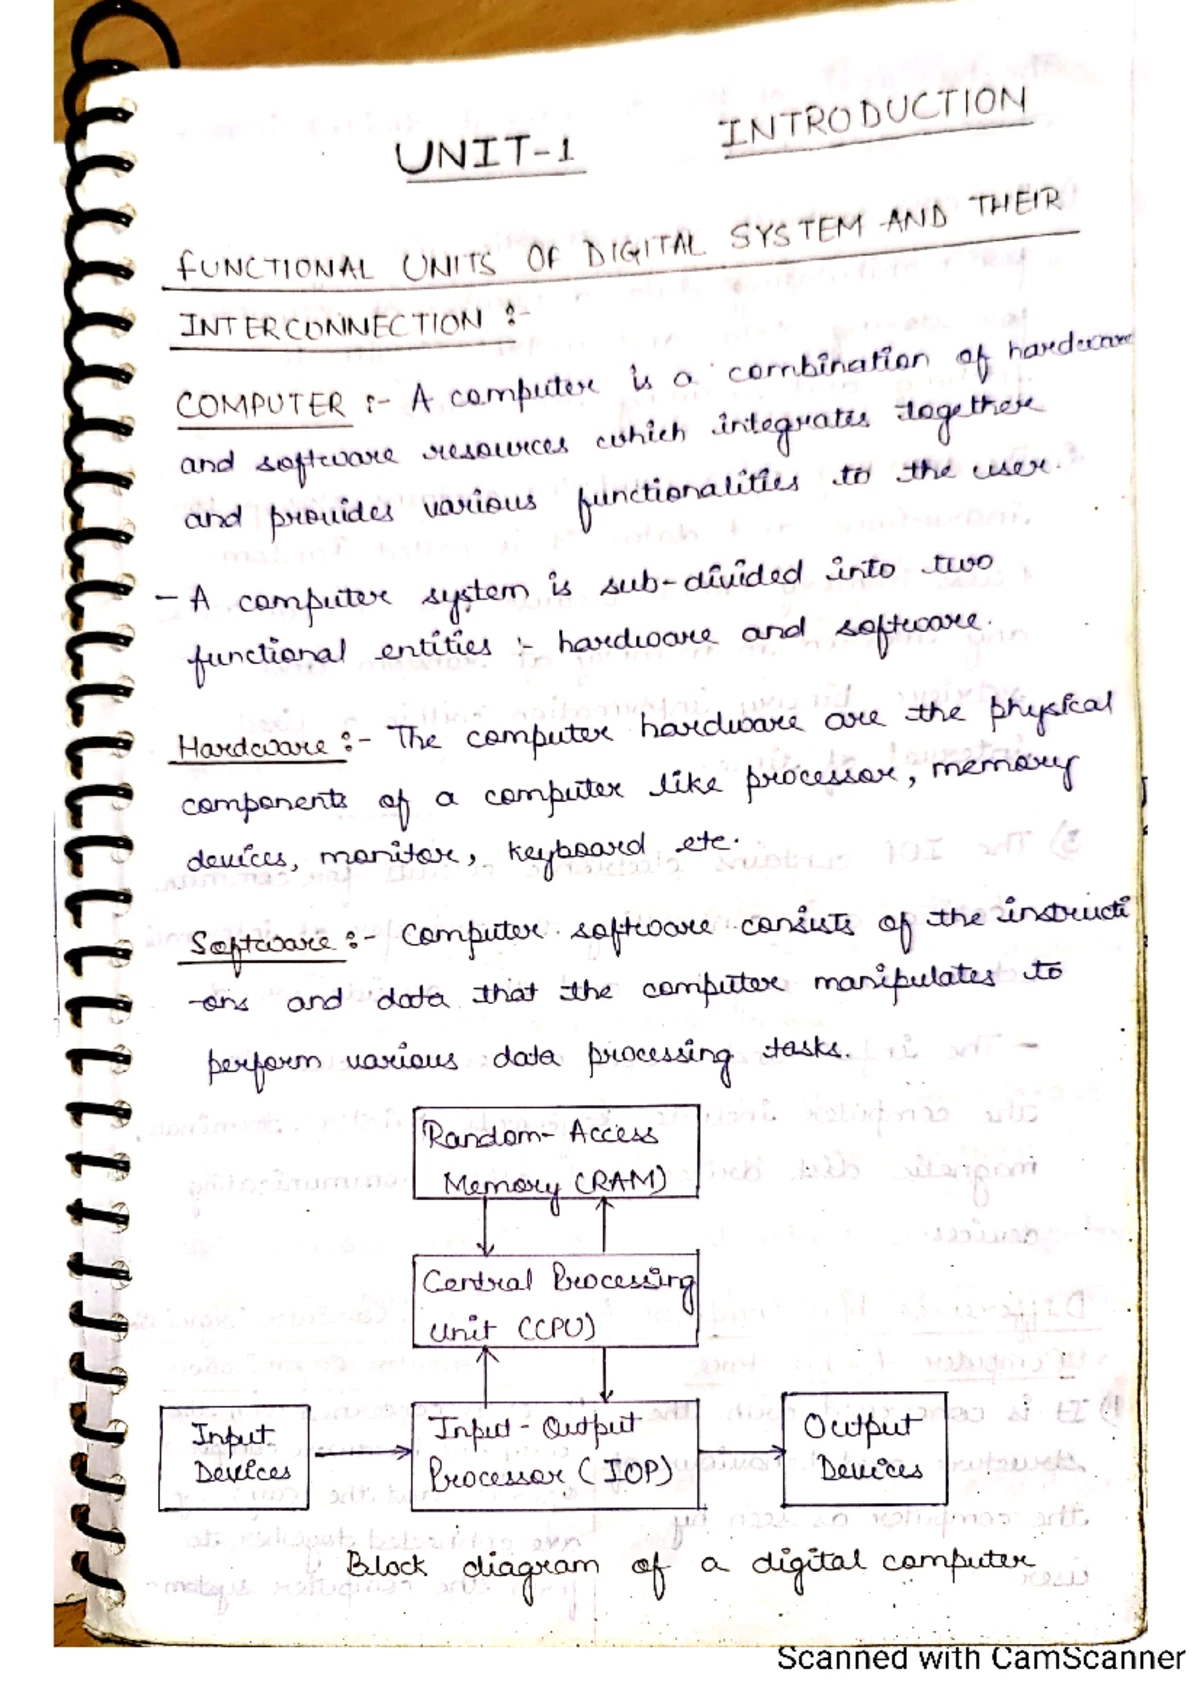 UNIT-1 INTRODUCTION
FUNCTIONAL UNITS OF DIGITAL SYSTEM AND THEIR
INTERCONNECTION :-
COMPUTER :- A computer is a combination of hardware
and software resources which integrates together
and provides various functionalities to the user.
- A computer system is sub-divided into two
functional entities :- hardware and software.
Hardware :- The computer hardware are the physical
components of a computer like processor, memory
devices, monitor, keyboard etc.
Software :- Computer software consists of the instructi
-ons and data that the computer manipulates to
perform various data processing tasks.
Random-Access
Memory (RAM)
Central Processing
Unit (CPU)
Input
Devices
Input-Output
Processor (IOP)
Output
Devices
Block diagram of a digital computer
Scanned with CamScanner